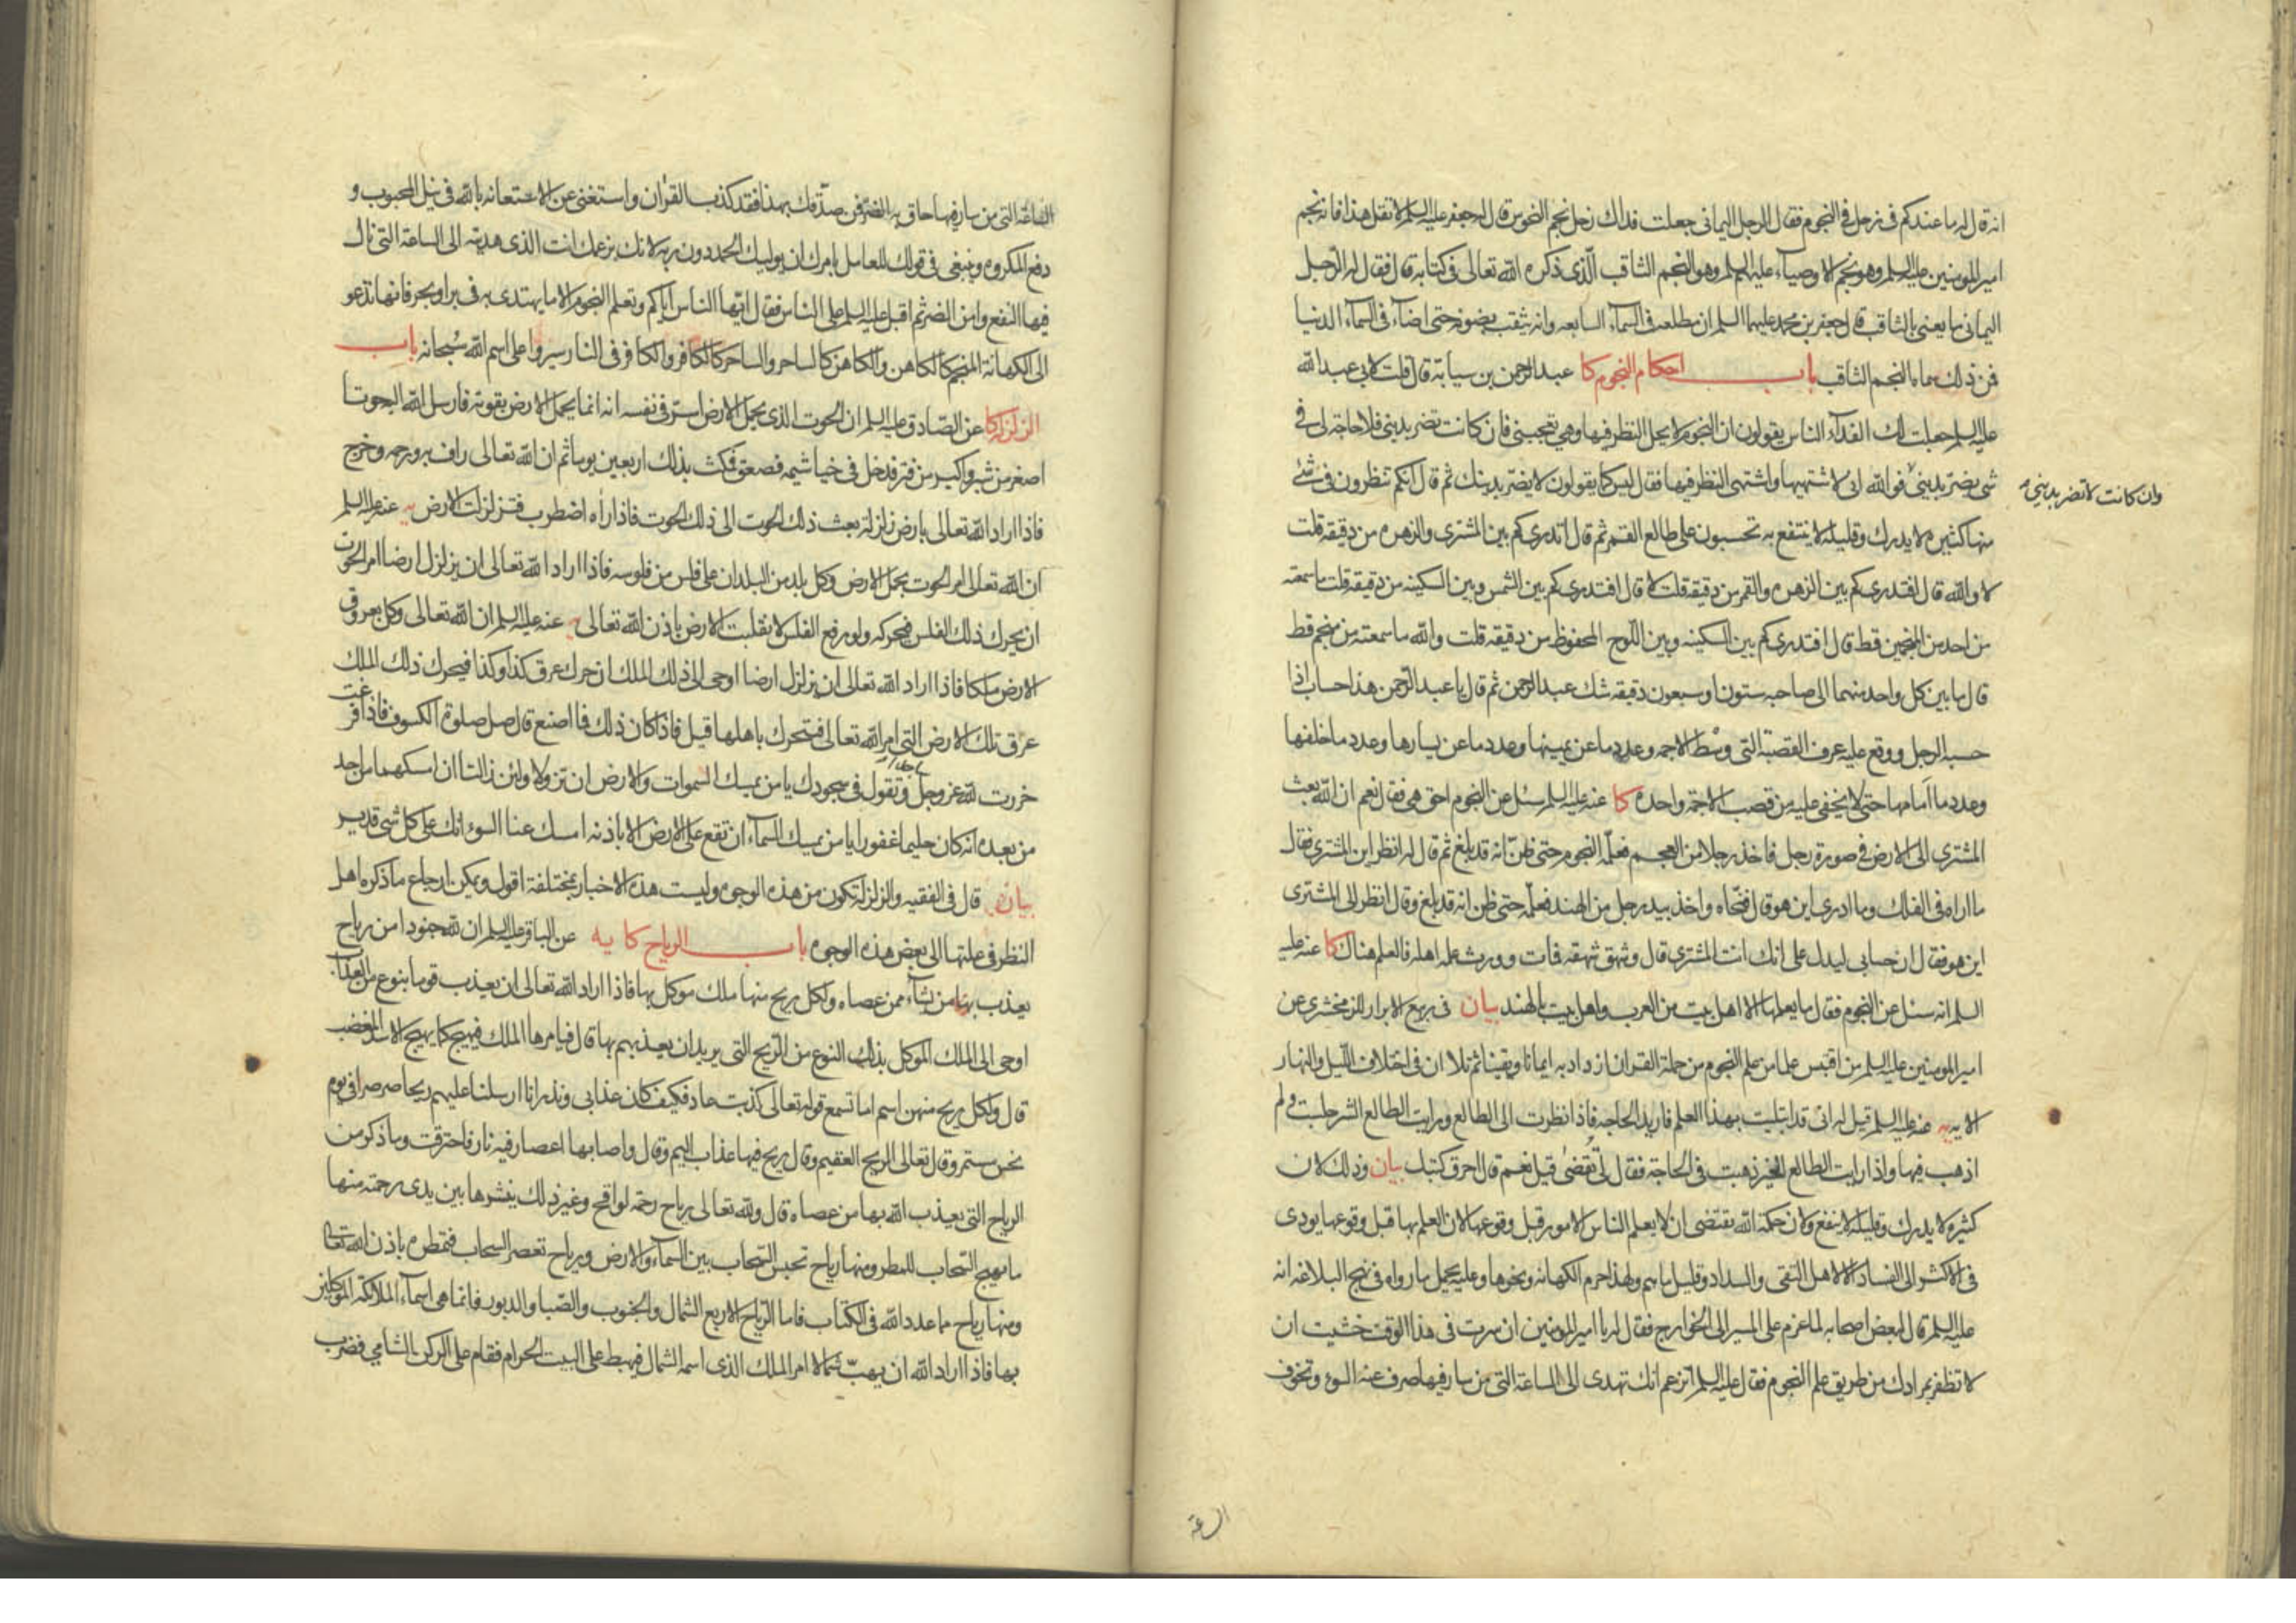 انه قال له ما عندكم فى زحل فى النجوم فقال الرجل اليمانى جعلت فداك زحل نجم النحوس قال له جعفر عليه السلم لا تقل هذا فانه نجم
امير المومنين عليه السلم وهو نجم الاوصياء عليهم السلم وهو النجم الثاقب الّذى ذكره الله تعالى فى كتابه قال فقال له الرّجل
اليمانى ما يعنى بالثاقب قال جعفر بن محمد عليهما السلم ان مطلعه فى السماء السابعه وانه يثقب بضوئه حتى اضاء فى السماء الدنيا
فمن ذلك سماه النجم الثاقب باب احكام النجوم كا عبد الرحمن بن سيابة قال قلت لابى عبد الله
عليه السلم جعلت لك الفداء الناس يقولون ان النجوم لا يحل النظر فيها وهى تعجبنى فان كانت تضر بدينى فلا حاجة لى فى
شى يضرّ بدينى فو الله انى لا شتهيها واشتهى النظر فيها فقال ليس كما يقولون لا يضرّ بدينك ثم قال انكم تنظرون فى شئ
وان كانت لا تضر بدينى
منها كثيره لا يدرك وقليله لا ينتفع به تحسبون على طالع القمر ثم قال اتدرى كم بين المشترى والزهره من دقيقه قلت
لا والله قال افتدرى كم بين الزهره والقمر من دقيقه قلت لا قال افتدرى كم بين الشمس وبين السكينه من دقيقه قلت ما سمعته
من احد من المنجمين قط قال افتدرى كم بين السكينه وبين اللّوح المحفوظ من دقيقه قلت والله ما سمعته من منجم قط
قال ما بين كل واحد منهما الى صاحبه ستون او سبعون دقيقه شك عبد الرحمن ثم قال يا عبد الرّحمن هذا حساب اذا
حسبه الرجل ووقع عليه عرف القصبة التى وسْط الاجمه وعدد ما عن يمينها وعدد ما عن يسارها وعدد ما خلفها
وعدد ما امامها حتى لا يخفى عليه من قصب الاجمة واحده كا عنه عليه السلم سئل عن النجوم احق هى فقال نعم ان الله بعث
المشترى الى الارض فى صورة رجل فاخذ رجلا من العجم فعلّمه النجوم حتى ظنّ انه قد بلغ ثم قال له انظر اين المشترى فقال
ما اراه فى الفلك وما ادرى اين هو قال فنحّاه واخذ بيد رجل من الهند فعلّمه حتى ظن انه قد بلغ وقال انظر الى المشترى
اين هو فقال ان حسابى ليدل على انك انت المشترى قال وشهق شهقه فمات وورث علمه اهله فالعلم هناك كا عنه عليه
السلم انه سئل عن النجوم فقال ما يعلمها الا اهل بيت من العرب واهل بيت بالهند بيان فى ربيع الابرار للزمخشرى عن
امير المومنين عليه السلم من اقتبس علما من علم النجوم من حملة القران ازداد به ايمانا ويقينا ثم تلا ان فى اختلاف اللّيل والنهار
الايه يه عنه عليه السلم قيل له انى قد ابتليت بهذا العلم فاريد الحاجه فاذا نظرت الى الطالع ورايت الطالع الشر جلست ولم
اذهب فيها واذا رايت الطالع الخير ذهبت فى الحاجة فقال لى تقضى قيل نعم قال احرق كتبك بيان وذلك لان
كثيره لا يدرك وقليله لا ينفع ولان حكمة الله يقتضى ان لا يعلم الناس الامور قبل وقوعها لان العلم بها قبل وقوعها يودى
فى الاكثر الى الفساد الا لاهل التقى والسداد وقليل ما هم ولهذا حرم الكهانه ونحوها وعليه يحمل ما رواه فى نهج البلاغه انه
عليه السلم قال لبعض اصحابه لما عزم على المسير الى الخوارج فقال له يا امير المومنين ان سرت فى هذا الوقت خشيت ان
لا تظفر بمرادك من طريق علم النجوم فقال عليه السلم اتزعم انك تهدى الى الساعة التى من سار فيها صرف عنه السوء وتخوف
الساعة
الساعة التى من سار فيها حاق به الضر فمن صدّقك بهذا فقد كذب القران واستغنى عن الاستعانه بالله فى نيل المحبوب و
دفع المكروه وينبغى فى قولك للعامل بامرك ان يوليك الحمد دون ربه لانك بزعمك انت الذى هديته الى الساعة التى نال
فيها النفع وامن الضر ثم اقبل عليه السلم على الناس فقال ايّها الناس اياكم وتعلم النجوم الا ما يهتدى به فى بر او بحر فانها تدعو
الى الكهانة المنجم كالكاهن والكاهن كالساحر والساحر كالكافر والكافر فى النار سيروا على اسم الله سبحانه باب
الزلزلة كا عن الصّادق عليه السلم ان الحوت الذى يحمل الارض اسرّ فى نفسه انه انما يحمل الارض بقوته فارسل الله اليه حوتا
اصغر من شبر واكبر من فتر فدخل فى خياشيمه فصعق فمكث بذلك اربعين يوما ثم ان الله تعالى راف به ورحمه وخرج
فاذا اراد الله تعالى بارض زلزلة بعث ذلك الحوت الى ذلك الحوت فاذا رأه اضطرب فتزلزلت الارض يه عنه عليه السلم
ان الله تعالى امر الحوت بحمل الارض وكل بلد من البلدان على فلس من فلوسه فاذا اراد الله تعالى ان يزلزل ارضا امر الحوت
ان يحرك ذلك الفلس فيحركه ولو رفع الفلس لانقلبت الارض باذن الله تعالى يه عنه عليه السلم ان الله تعالى وكل بعروق
الارض ملكا فاذا اراد الله تعالى ان يزلزل ارضا اوحى الى ذلك الملك ان حرك عرق كذا وكذا فيحرك ذلك الملك
عرق تلك الارض التى امر الله تعالى فتتحرك باهلها قيل فاذا كان ذلك فما اصنع قال صل صلوة الكسوف فاذا فرغت
خررت لله عز وجل ساجدا وتقول فى سجودك يا من يمسك السموات والارض ان تزولا ولئن زالتا ان امسكهما من احد
من بعده انه كان حليما غفورا يا من يمسك السماء ان تقع على الارض الا باذنه امسك عنا السوء انك على كل شى قدير
بيان قال فى الفقيه والزلزلة تكون من هذه الوجوه وليست هذه الاخبار بمختلفة اقول ويمكن ارجاع ما ذكره اهل
النظر فى علتها الى بعض هذه الوجوه باب الرياح كا يه عن الباقر عليه السلم ان لله جنودا من رياح
يعذب بها من يشاء ممن عصاه ولكل ريح منها ملك موكل بها فاذا اراد الله تعالى ان يعذب قوما بنوع من العذاب
اوحى الى الملك الموكل بذلك النوع من الرّيح التى يريد ان يعذبهم بها قال فيامرها الملك فيهيج كما يهيج الاسد المغضب
قال ولكل ريح منهن اسم اما تسمع قوله تعالى كذبت عاد فكيف كان عذابى ونذر انا ارسلنا عليهم ريحا صرصرا فى يوم
نحس مستمر وقال تعالى الريح العقيم وقال ريح فيها عذاب اليم وقال واصابها اعصار فيه نار فاحترقت وما ذكر من
الرياح التى يعذب الله بها من عصاه قال ولله تعالى رياح رحمة لواقح وغير ذلك ينشرها بين يدى رحمته منها
ما يهيج السّحاب للمطر ومنها رياح تحبس السّحاب بين السماء والارض ورياح تعصر السحاب فتمطره باذن الله تعالى
ومنها رياح مما عدد الله فى الكتاب فاما الرّياح الاربع الشمال والجنوب والصّبا والدبور فانما هى اسماء الملائكة الموكلين
بها فاذا اراد الله ان يهبّ شمالا امر الملك الذى اسمه الشمال فيهبط على البيت الحرام فقام على الركن الشامي فضرب